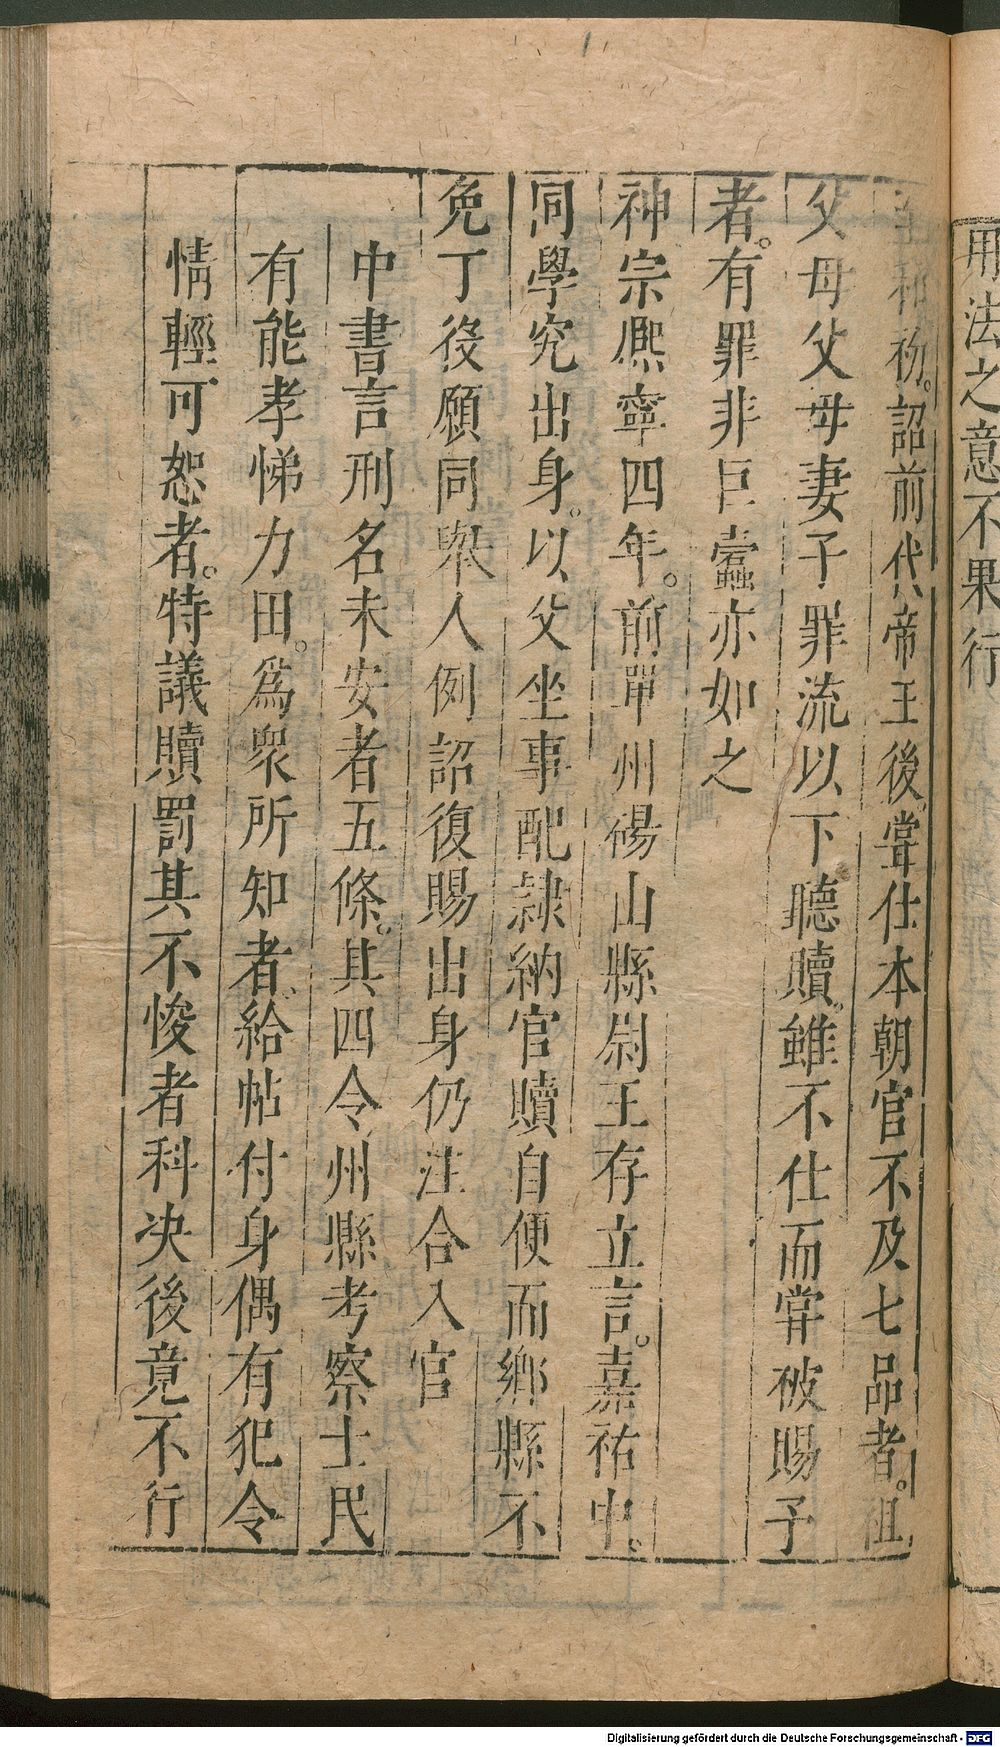 用法之意不果行
至和初。詔前代帝王後甞仕本朝官不及七品者。祖
父母父母妻子罪流以下聽贖。雖不仕而甞被賜予
者。有罪非巨蠹亦如之
神宗熈寧四年。前單州碭山縣尉王存立言。嘉祐中。
同學究出身。以父坐事配隷納官贖自便而鄉縣不
免丁役願同舉人例詔復賜出身仍注合入官
中書言刑名未安者五條。其四令州縣考察士民
有能孝悌力田。爲衆所知者。給帖付身偶有犯令
情輕可恕者。特議贖罰其不悛者科決後竟不行
Digitalisierung gefördert durch die Deutsche Forschungsgemeinschaft - DFG